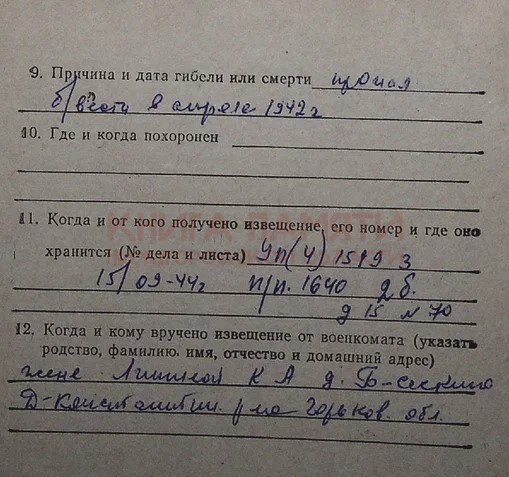 9. Причина и дата гибели или смерти пропал
б/вести в апреле 1942 г
10. Где и когда похоронен
КНИГА ПАМЯТИ
11. Когда и от кого получено извещение, его номер и где оно
хранится (№ дела и листа) Уп(4) 1519 3
15/09-44г п/п. 1640 2 б.
д 15 № 70
12. Когда и кому вручено извещение от военкомата (указать
родство, фамилию, имя, отчество и домашний адрес)
жене К А д.
Д-Константин. р-на Горьков. обл.